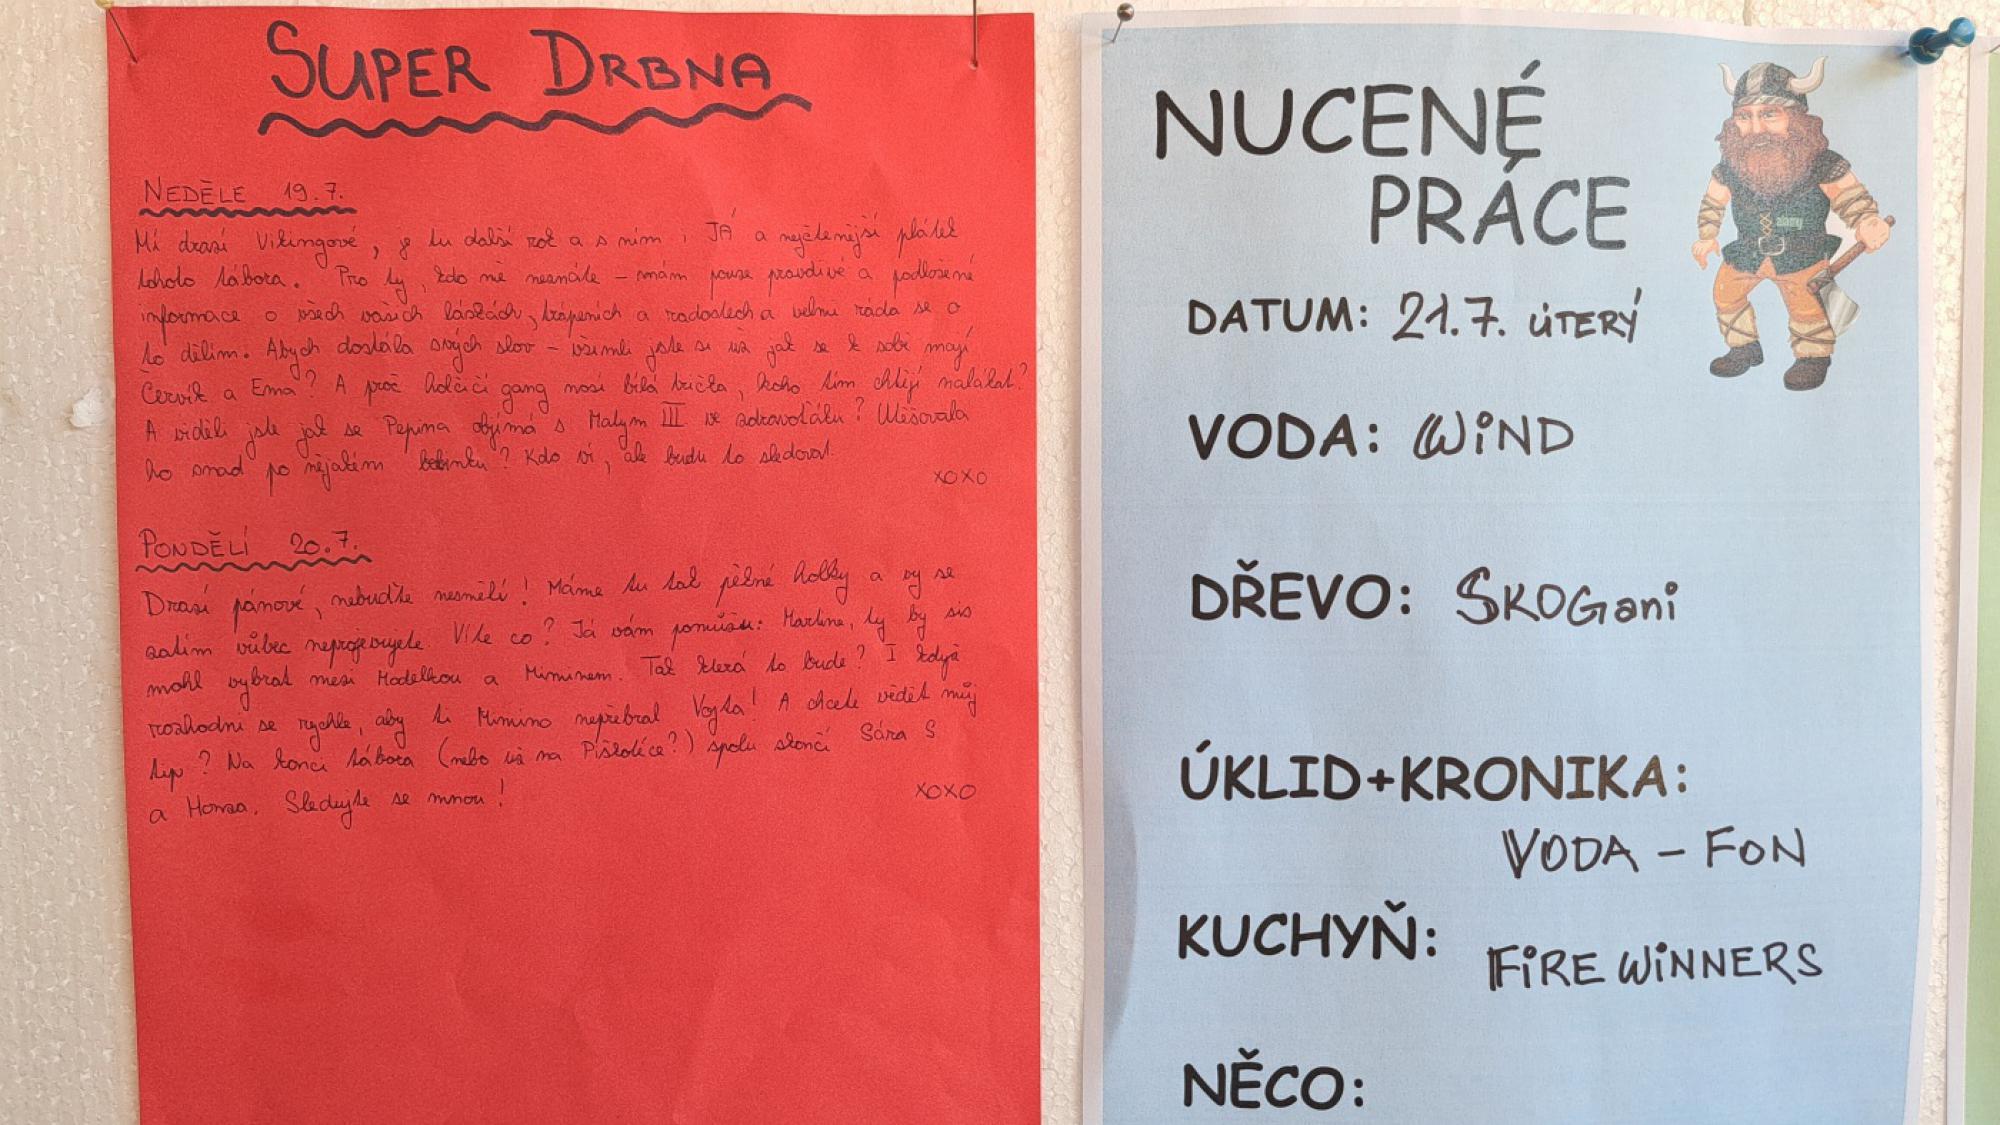 SUPER DRBNA
NEDĚLE 19.7.
Mí drazí Vikingové, je tu další rok a s ním i JÁ a nejčtenější plátek
tohoto tábora. Pro ty, kdo mě neznáte – mám pouze pravdivé a podložené
informace o všech vašich láskách, trápeních a radostech a velmi ráda se o
to dělím. Abych dostála svých slov – všimli jste si už jak se k sobě mají
Červík a Ema? A proč holčičí gang nosí bílá trička, koho tím chtějí nalákat?
A viděli jste jak se Pepina objímá s Malym III ve zdravoťáku? Utěšovala
ho snad po nějakém? Kdo ví, ale budu to sledovat.
xoxo
PONDĚLÍ 20.7.
Drazí pánové, nebuďte nesmělí! Máme tu tak pěkné holky a vy se
zatím vůbec neprojevujete. Víte co? Já vám pomůžu: Martine, ty by sis
mohl vybrat mezi Modelkou a Miminem. Tak která to bude? I když
rozhodni se rychle, aby ti Mimino nepřebral Vojta! A chcete vědět můj
tip? Na konci tábora (nebo už na Pištotéce?) spolu skončí Sára S
a Honza. Sledujte se mnou!
xoxo
NUCENÉ
PRÁCE
alamy
DATUM: 21.7. ÚTERÝ
VODA: WiND
DŘEVO: SKOGani
ÚKLID+KRONIKA:
VODA – FON
KUCHYŇ:
FiRE WiNNERS
NĚCO: